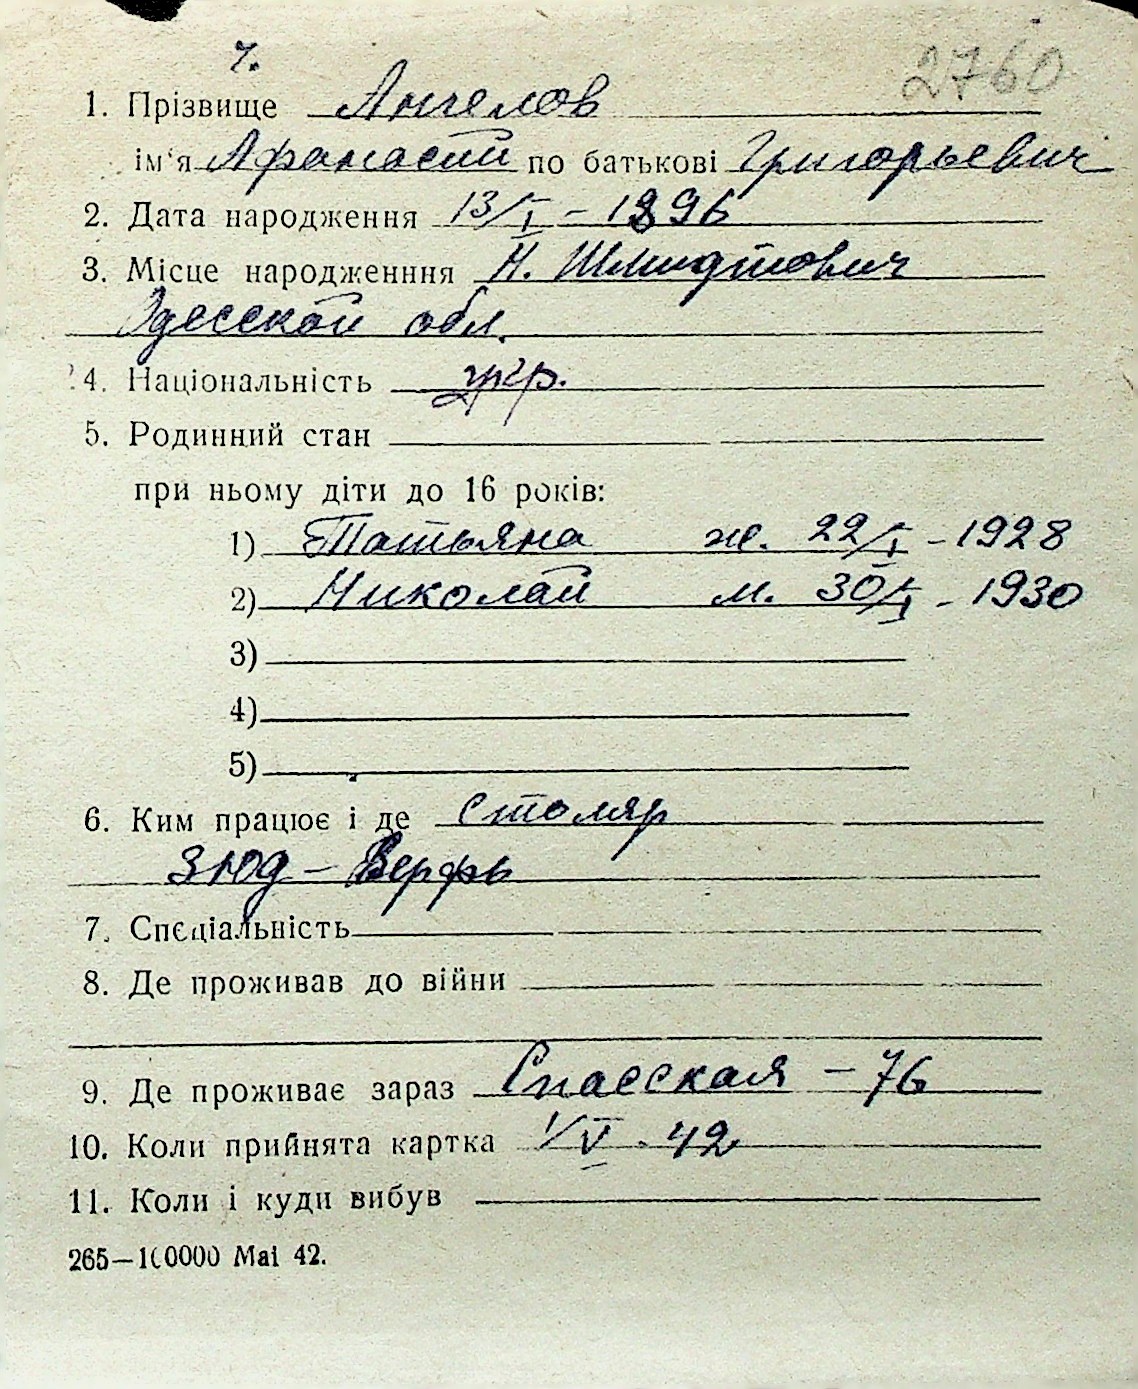 7.
2760
1. Прізвище Ангелов
ім'я Афанасий по батькові Григорьевич
2. Дата народження 13/I – 1896
3. Місце народженння Н. Шмидтович
Одесской обл.
4. Національність укр.
5. Родинний стан
при ньому діти до 16 років:
1) Татьяна ж. 22/I – 1928
2) Николай м. 30/I – 1930
3)
4)
5)
6. Ким працює і де столяр
Зюд – Верфь
7. Спєціальність
8. Де проживав до війни
9. Де проживає зараз Спасская – 76
10. Коли прийнята картка 1/V - 42
11. Коли і куди вибув
265—100000 Mai 42.